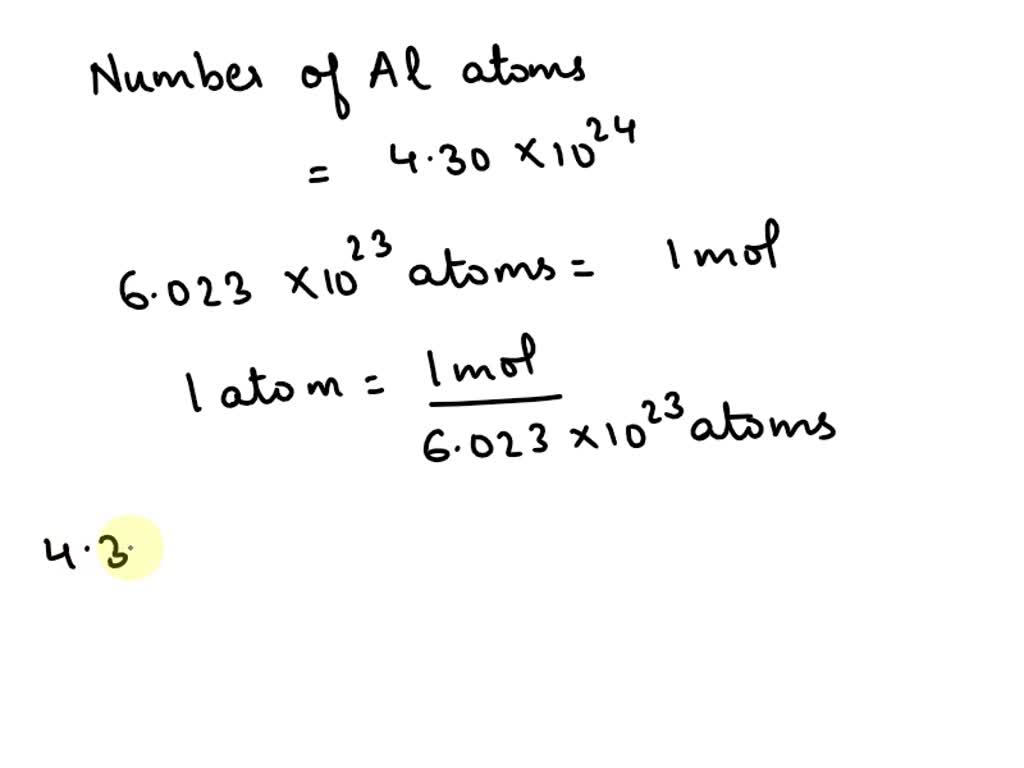 Number of Al atoms
= 4.30 × 10²⁴
6.023 × 10²³ atoms = 1 mol
1 atom = 1 mol
6.023 × 10²³ atoms
4.3